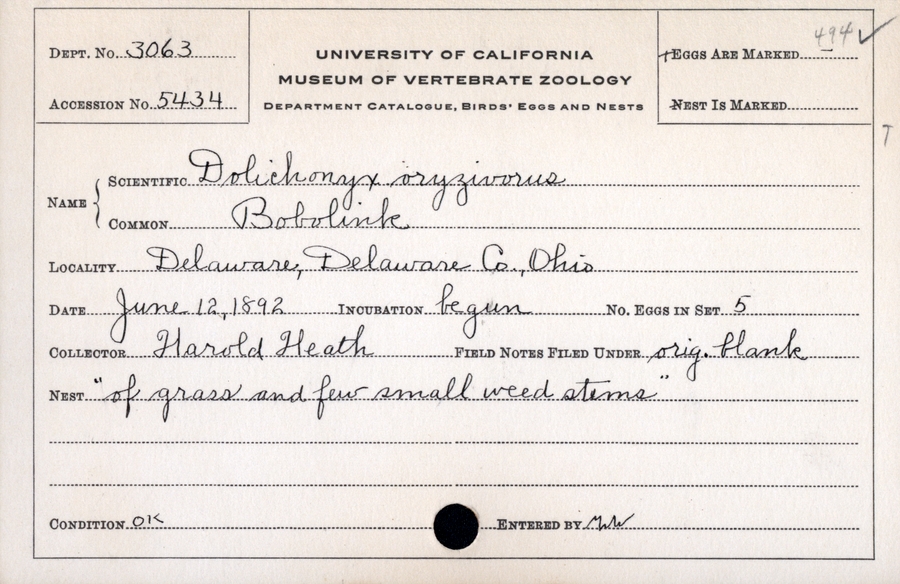 DEPT. NO. 3063
ACCESSION NO. 5434
UNIVERSITY OF CALIFORNIA
MUSEUM OF VERTEBRATE ZOOLOGY
DEPARTMENT CATALOGUE, BIRDS' EGGS AND NESTS
EGGS ARE MARKED 494 ✓
NEST IS MARKED
T
NAME { SCIENTIFIC Dolichonyx oryzivorus
COMMON Bobolink
LOCALITY Delaware, Delaware Co., Ohio
DATE June 12, 1892 INCUBATION begun NO. EGGS IN SET 5
COLLECTOR Harold Heath FIELD NOTES FILED UNDER orig. blank
NEST "of grass and few small weed stems"
CONDITION OK ENTERED BY